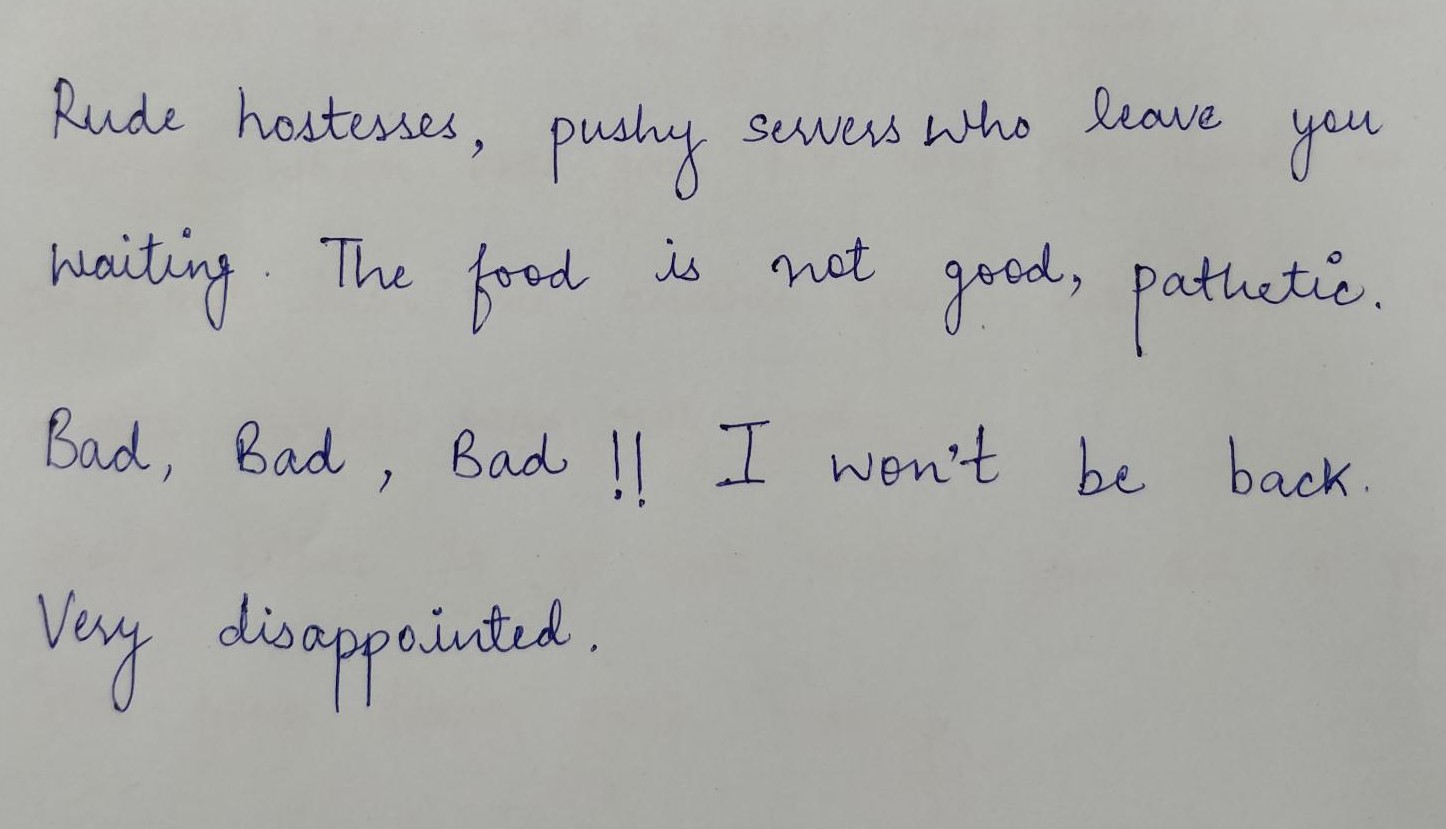 Rude hostesses, pushy servers who leave you
waiting. The food is not good, pathetic.
Bad, Bad, Bad!! I won't be back.
Very disappointed.